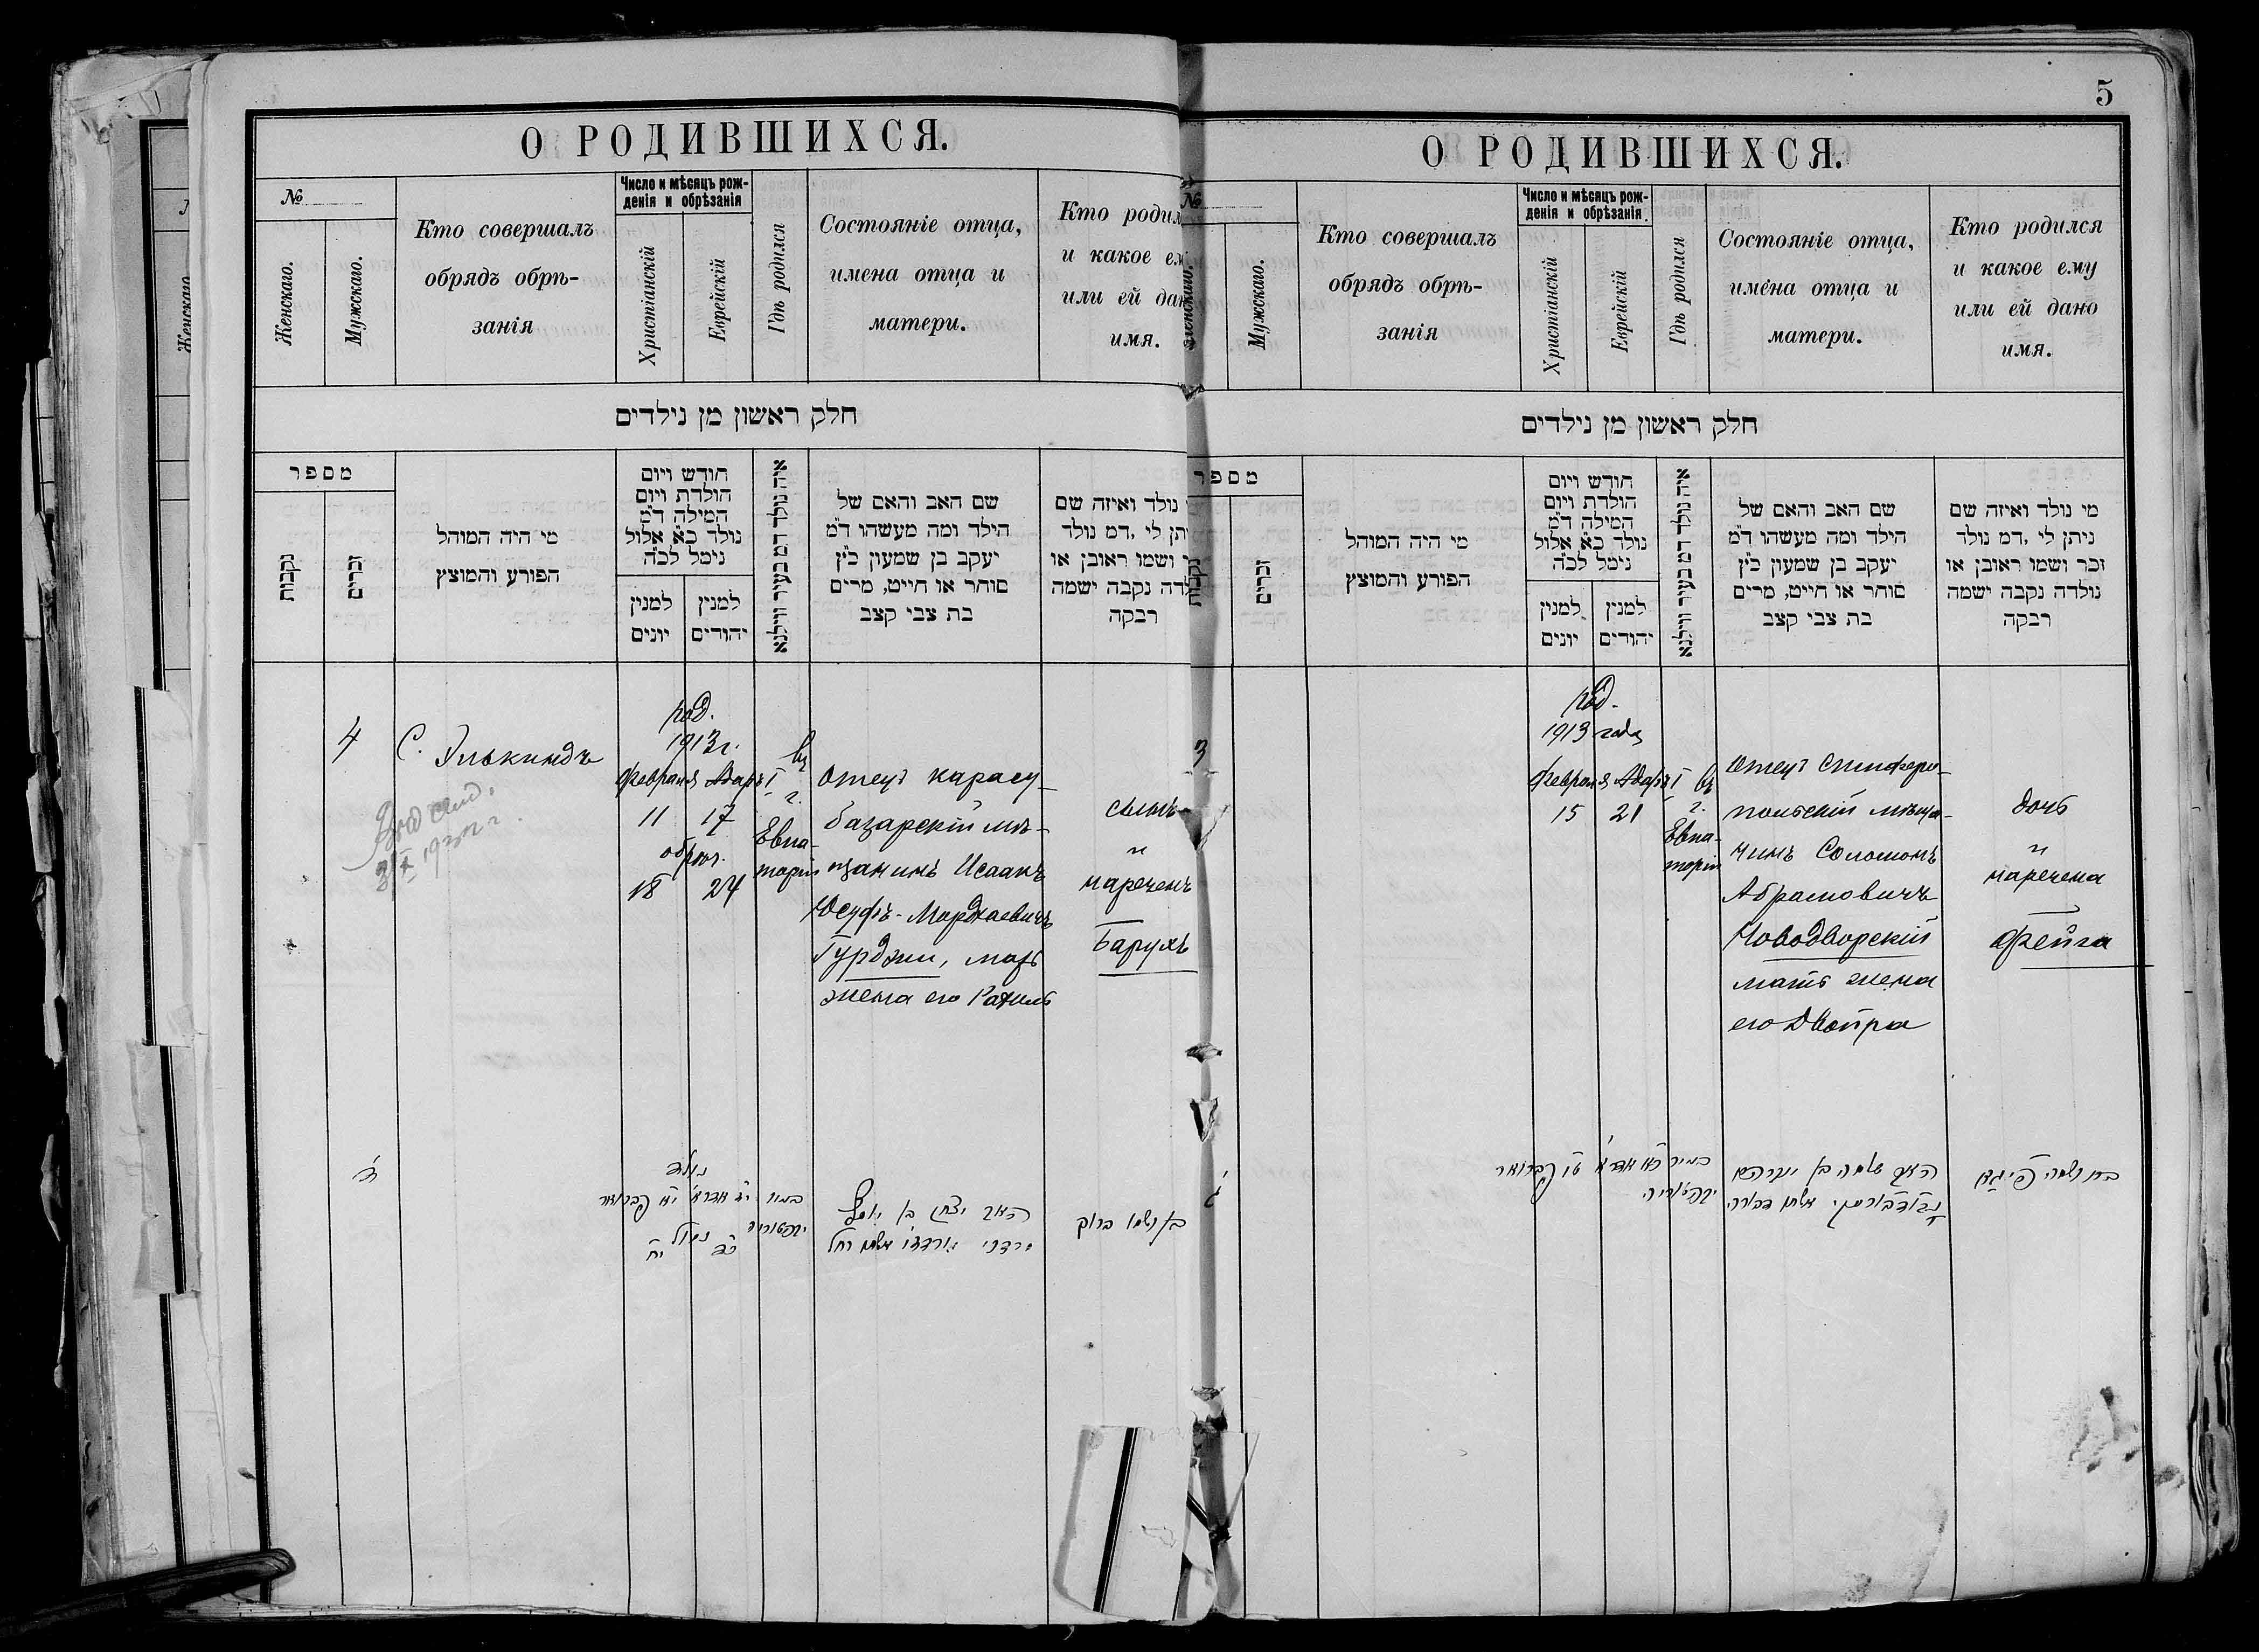 О РОДИВШИХСЯ.
№
Женскаго.
Мужскаго.
Кто совершалъ
обрядъ обрѣ-
занія
Число и мѣсяцъ рож-
денія и обрѣзанія
Христіанскій
Еврейскій
Гдѣ родился
Состояніе отца,
имена отца и
матери.
Кто родил
и какое ем
или ей дан
имя.
חלק ראשון מן נילדים
מספר
נקבות
זכרים
מי היה המוהל
הפורע והמוצץ
חודש ויום
הולדת ויום
המילה ד״מ
נולד כ״א אלול
נימל לכ״ה
למנין
יונים
למנין
יהודים
איה נולד דמ בעיר ווילנא
שם האב והאם של
הילד ומה מעשהו ד״מ
יעקב בן שמעון כ״ץ
סוחר או חייט, מרים
בת צבי קצב
נולד ואיזה שם
יתן לי ,דמ נולד
ושמו ראובן או
לדה נקבה ישמה
רבקה
4
С. Элькиндъ
род.
1913 г.
Февраля Адаръ I
11 17
обрѣз.
18 24
въ
г.
Евпа-
торіи
Отецъ карасу-
базарскій мѣ-
щанинъ Исаакъ
Юсуфъ-Мардхаевичъ
Гурджи, мать
жена его Рахиль
сынъ
и
нареченъ
Барухъ
ד׳
נולד
י״ז אדר א׳ י״א פברואר
נימול
כ״ד י״ח
האב יצחק בן יוסף
אשתו רחל
בן ושמו ברוך
5
О РОДИВШИХСЯ.
№
Женскаго.
Мужскаго.
Кто совершалъ
обрядъ обрѣ-
занія
Число и мѣсяцъ рож-
денія и обрѣзанія
Христіанскій
Еврейскій
Гдѣ родился
Состояніе отца,
имена отца и
матери.
Кто родился
и какое ему
или ей дано
имя.
חלק ראשון מן נילדים
מספר
נקבות
זכרים
מי היה המוהל
הפורע והמוצץ
חודש ויום
הולדת ויום
המילה ד״מ
נולד כ״א אלול
נימל לכ״ה
למנין
יונים
למנין
יהודים
איה נולד דמ בעיר ווילנא
שם האב והאם של
הילד ומה מעשהו ד״מ
יעקב בן שמעון כ״ץ
סוחר או חייט, מרים
בת צבי קצב
מי נולד ואיזה שם
ניתן לי ,דמ נולד
זכר ושמו ראובן או
נולדה נקבה ישמה
רבקה
3
род.
1913 года
Февраля Адаръ I
15 21
въ
г.
Евпа-
торіи
Отецъ Симферо-
польскій мѣща-
нинъ Соломонъ
Абрамовичъ
Новодворскій
мать жена
его Двойра
дочь
и
наречена
Фейга
ג׳
כ״א אדר א׳ ט״ו פברואר
האב שלמה בן אברהם
נבודבורסקי אשתו דבורה
בת ושמה פייגא